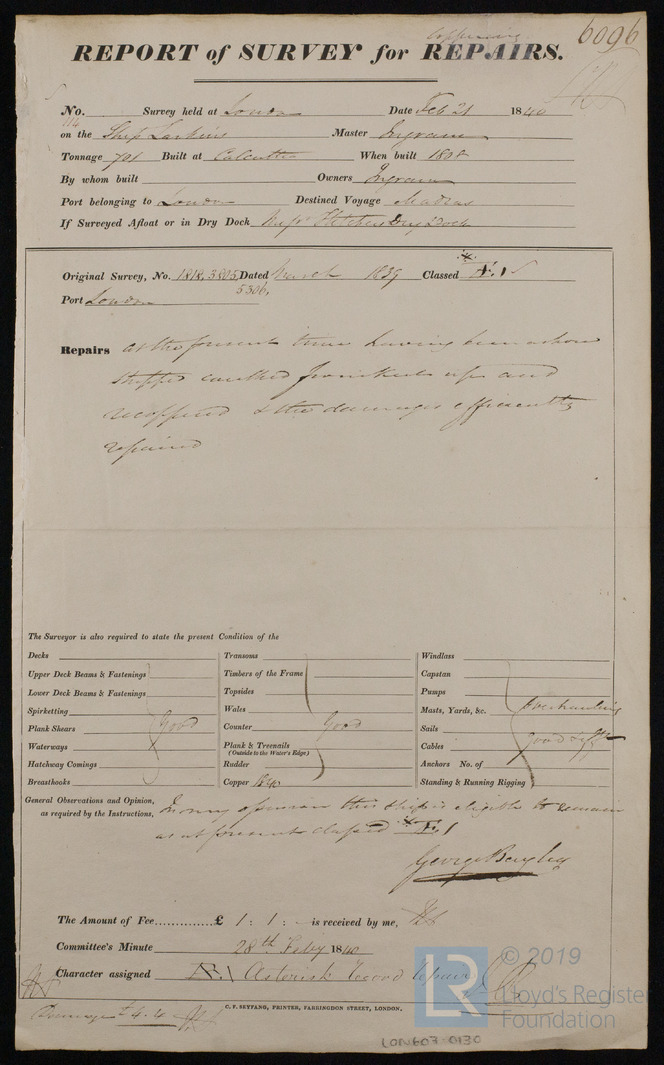 Coppering
6096
REPORT of SURVEY for REPAIRS.
No. Survey held at London Date Feb 21 1840
114
on the Ship Larkins Master Ingram
Tonnage 701 Built at Calcutta When built 1808
By whom built Owners Ingram
Port belonging to London Destined Voyage Madras
If Surveyed Afloat or in Dry Dock Fletchers Dry Dock
Original Survey, No. 1818, 3805, Dated March 1839 Classed Æ.1
Port London 5306,
Repairs at the present time having been
stripped caulked up and
recoppered & the damages efficiently
repaired
The Surveyor is also required to state the present Condition of the
Decks
Upper Deck Beams & Fastenings
Lower Deck Beams & Fastenings
Spirketting
Plank Shears Good
Waterways
Hatchway Comings
Breasthooks
Transoms
Timbers of the Frame
Topsides
Wales
Counter Good
Plank & Treenails
(Outside to the Water's Edge)
Rudder
Copper 1840
Windlass
Capstan
Pumps
Masts, Yards, &c. Overhauling
Sails
Cables good &
Anchors No. of
Standing & Running Rigging
General Observations and Opinion, In my opinion this ship is eligible to remain
as required by the Instructions, as at present classed Æ.1
George Bayley
The Amount of Fee £ 1 : 1 : - is received by me,
Committee's Minute 28th Feby 1840
Character assigned Æ.1 Asterisk Record Repairs
Damage £4.4
C. F. SEYFANG, PRINTER, FARRINGDON STREET, LONDON,
LR
© 2019
Lloyd's Register
Foundation
LON603-0130